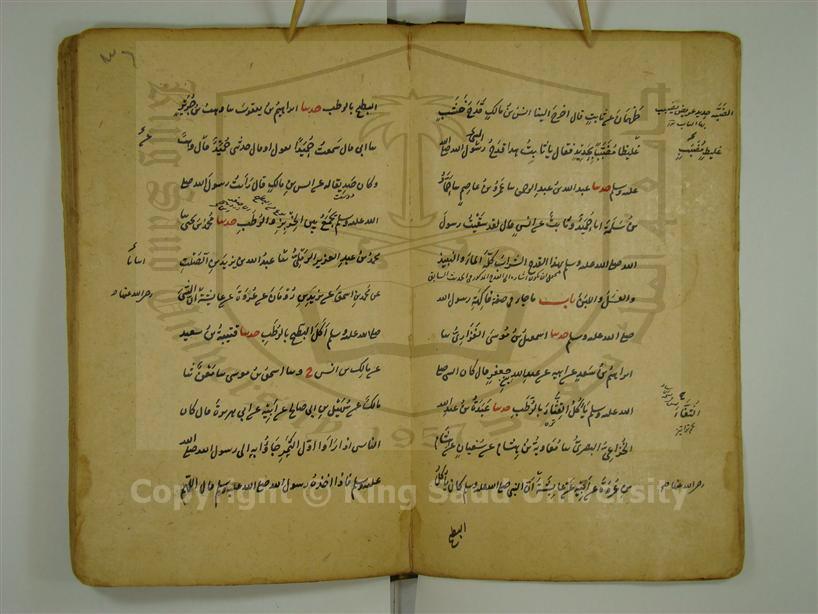 طهمان عن ثابت قال اخرج الينا انس بن مالك قدح خشب
غليظا مضبب بحديد فقال يا ثابت هذا قدح رسول الله صلى الله
عليه وسلم حدثنا عبد الله بن عبد الرحمن نا عمرو بن عاصم نا حماد
بن سلمة انا حميد وثابت عن انس قال لقد سقيت رسول
الله صلى الله عليه وسلم بهذا القدح الشراب كله الماء والنبيذ
والعسل واللبن باب ما جاء في صفة فاكهة رسول الله
صلى الله عليه وسلم حدثنا اسمعيل بن موسى الفزاري نا
ابراهيم بن سعد عن ابيه عن عبد الله بن جعفر قال كان النبي صلى
الله عليه وسلم ياكل القثاء بالرطب حدثنا عبدة بن عبد الله
الخزاعي البصري نا معاوية بن هشام عن سفيان عن هشام
بن عروة عن ابيه عن عايشة ان النبي صلى الله عليه وسلم كان ياكل
البطيخ
غليظ مضبب
القثاء
البطيخ بالرطب حدثنا ابراهيم بن يعقوب نا وهب بن جرير
نا ابي قال سمعت حميدا يقول او قال حدثني حميد قال وهب
وكان صديقا له عن انس بن مالك قال رايت رسول الله صلى
الله عليه وسلم يجمع بين الخربز والرطب حدثنا محمد بن يحيى نا
محمد بن عبد العزيز الرملي نا عبد الله بن يزيد بن الصلت
عن محمد بن اسحق عن يزيد بن رومان عن عروة عن عايشة ان النبي
صلى الله عليه وسلم اكل البطيخ بالرطب حدثنا قتيبة بن سعيد
عن مالك بن انس ح وحدثنا اسحق بن موسى نا معن نا
مالك عن سهيل بن ابي صالح عن ابيه عن ابي هريرة قال كان
الناس اذا راوا اول الثمر جاؤا به الى رسول الله صلى الله
عليه وسلم فاذا اخذه رسول الله صلى الله عليه وسلم قال اللهم
Copyright © King Saud University
1957